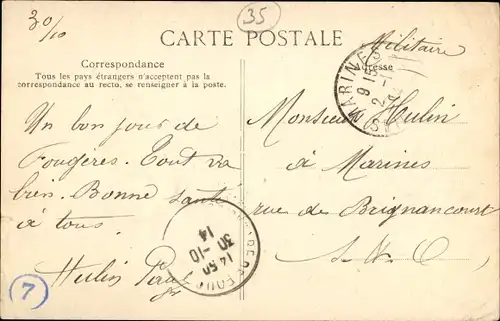 30/10
35
CARTE POSTALE
Militaire
Correspondance
Adresse
Tous les pays étrangers n'acceptent pas la
correspondance au recto, se renseigner à la poste.
Un bon jour de
Fougères. Tout va
bien. Bonne santé
à tous.
Hulin
Monsieur Hulin
à Marines
rue de Brignancourt
S-&-O
MARINES
9 15
14 50
30-10
14
7